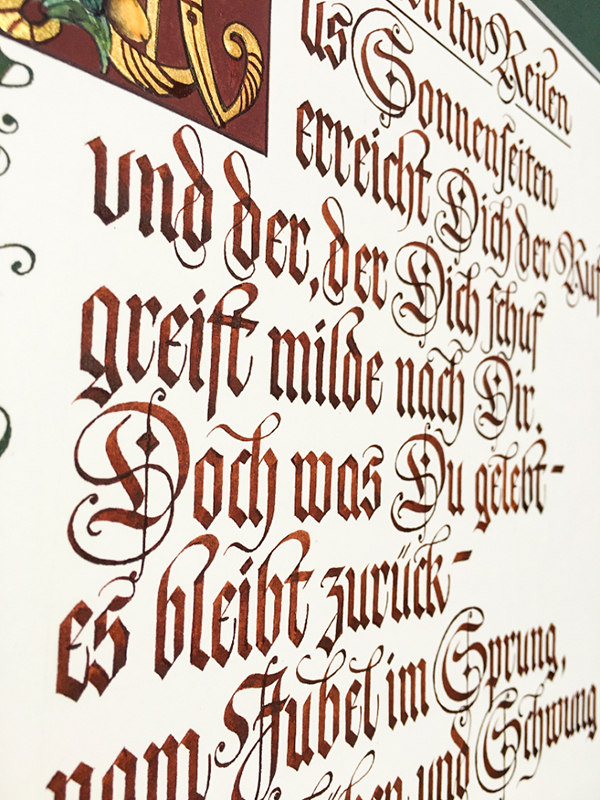 im Reiten
us Sonnenseiten
erreicht Dich der Ruf
vnd der, der Dich schuf
greift milde nach Dir.
Doch was Du gelebt-
es bleibt zurück-
vom Jubel im Sprung,
und Schwung